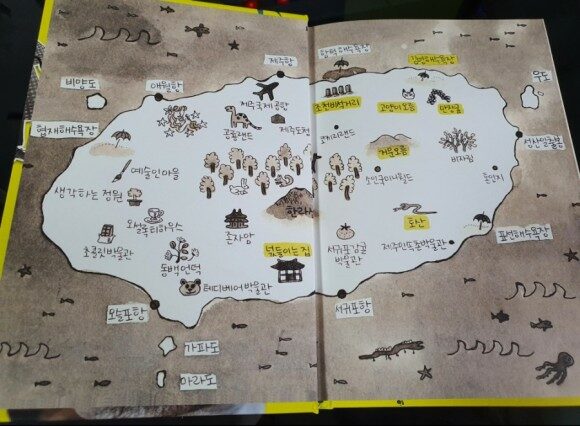 제주항
함덕해수욕장
김녕해수욕장
비양도
애월항
우도
제주국제공항
조천비석거리
고양이오름
만장굴
협재해수욕장
공룡랜드
제주도청
거문오름
비자림
성산일출봉
예술인마을
소인국미니월드
혼인지
생각하는 정원
한라산
오설록티하우스
존자암
넋들이는 집
토산
표선해수욕장
초콜릿박물관
동백언덕
서귀포감귤
박물관
제주민속촌박물관
테디베어박물관
모슬포항
서귀포항
가파도
마라도